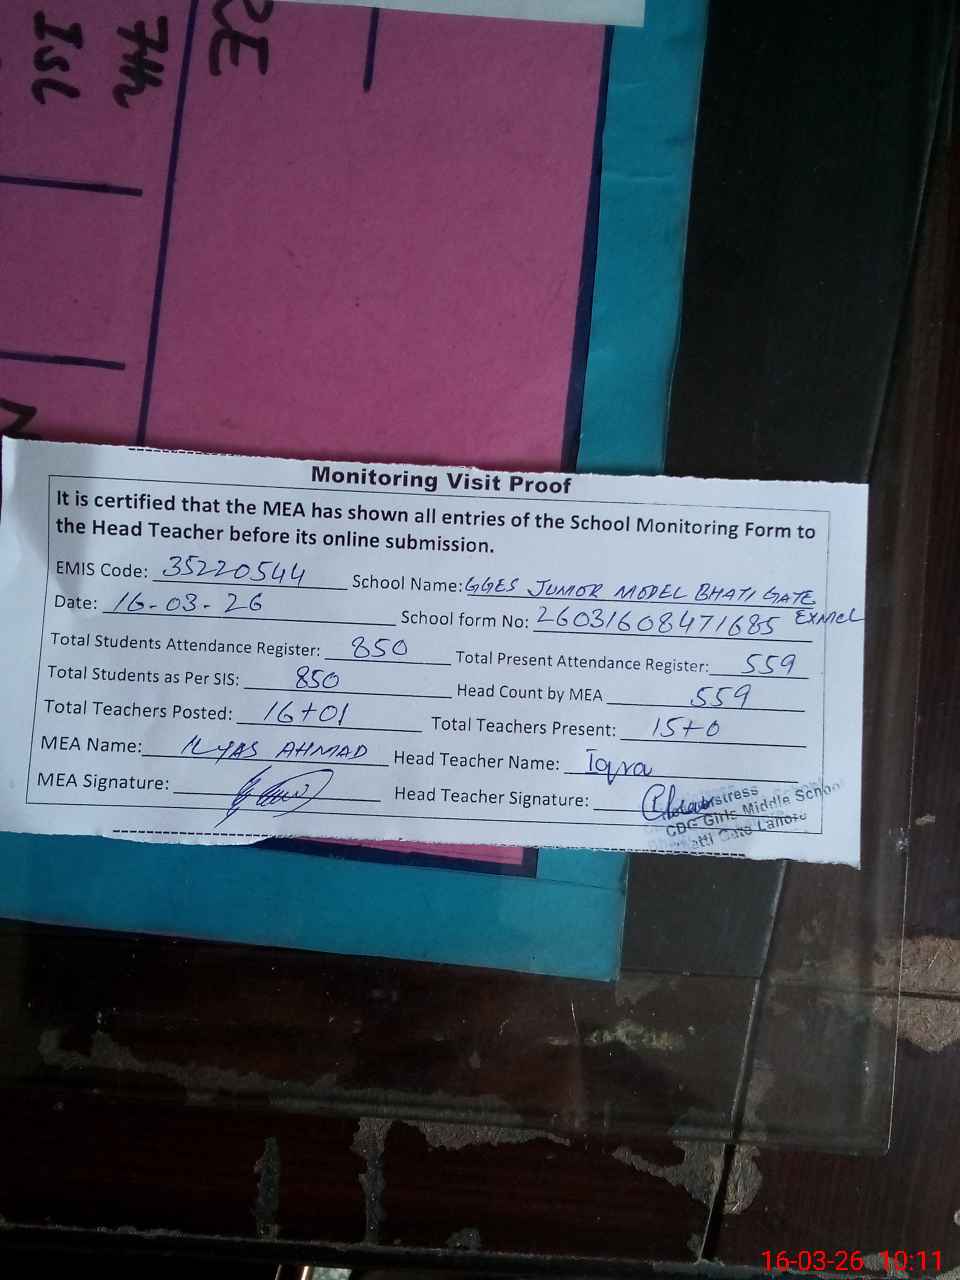 RE
7th
Isl
Monitoring Visit Proof
It is certified that the MEA has shown all entries of the School Monitoring Form to
the Head Teacher before its online submission.
EMIS Code: 35220544 School Name: GGES JUNIOR MODEL BHATI GATE
Date: 16-03-26 School form No: 26031608471685
Total Students Attendance Register: 850 Total Present Attendance Register: 559
Total Students as Per SIS: 850 Head Count by MEA 559
Total Teachers Posted: 16+01 Total Teachers Present: 15+0
MEA Name: ILYAS AHMAD Head Teacher Name: Iqra
MEA Signature: Head Teacher Signature:
CDG Girls Middle School
Gate Lahore
16-03-26 10:11